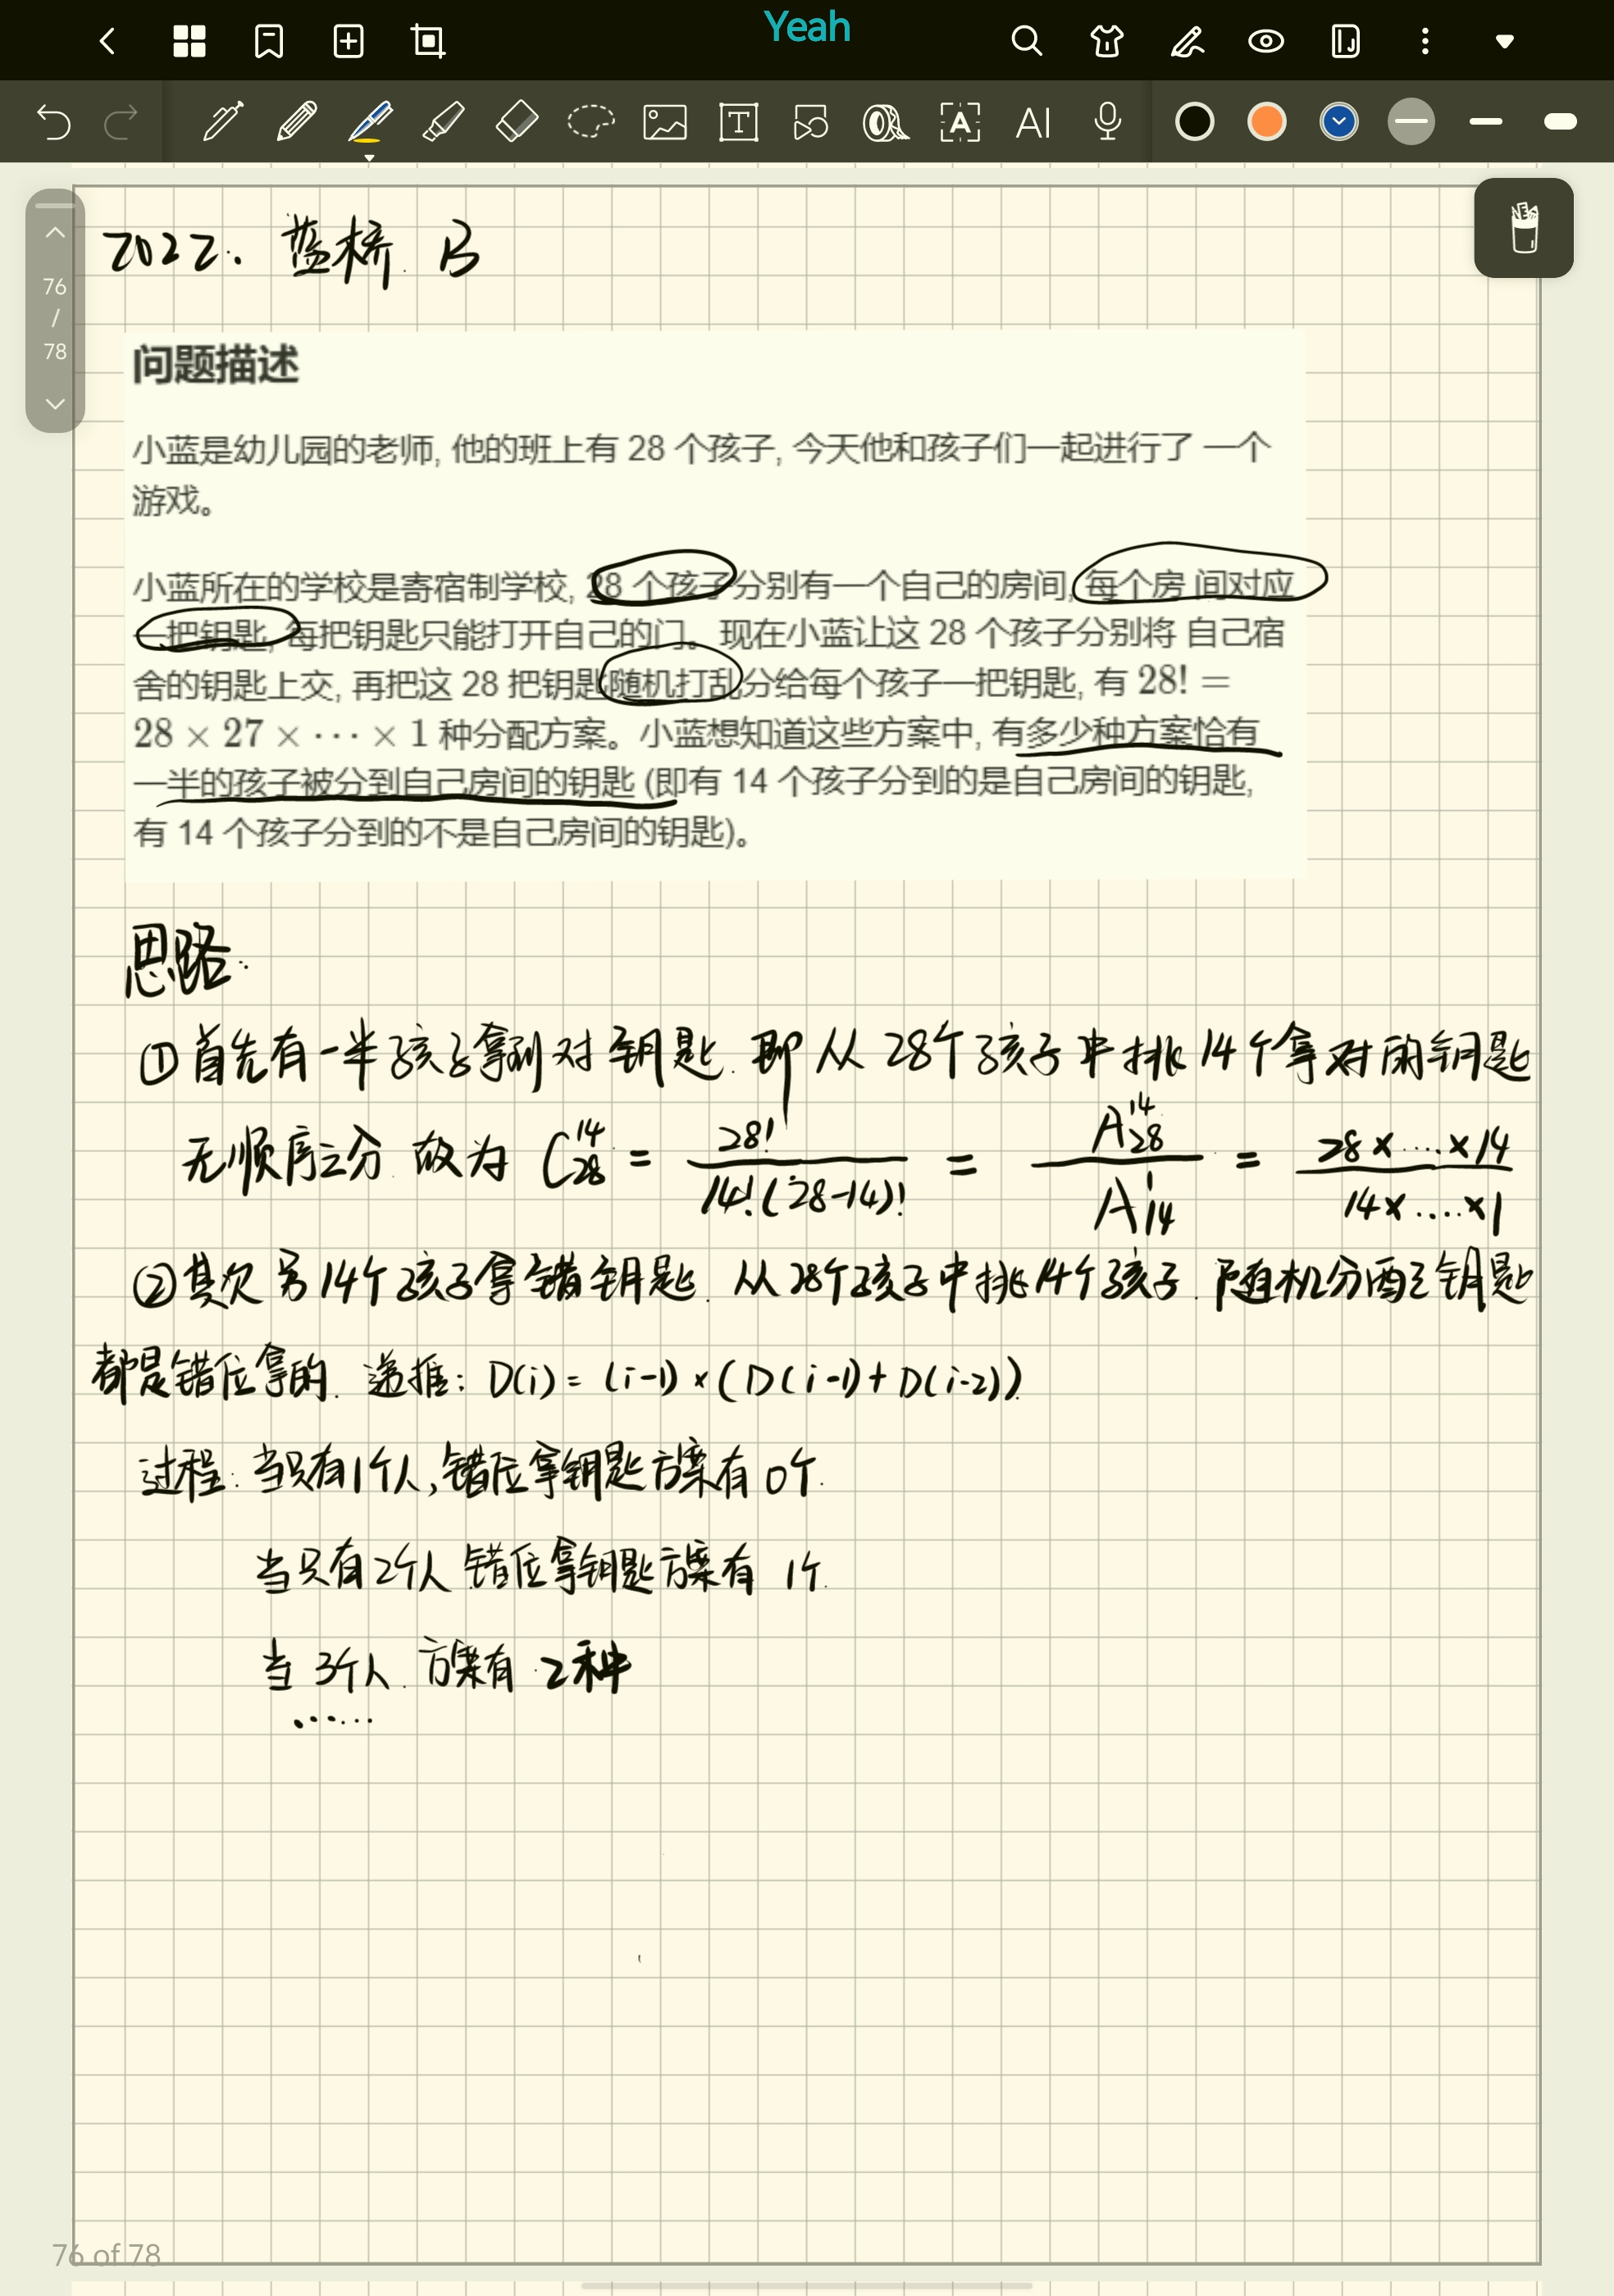 Yeah
T
A
AI
76
/
78
2022. 蓝桥 B
问题描述
小蓝是幼儿园的老师, 他的班上有 28 个孩子, 今天他和孩子们一起进行了 一个
游戏。
小蓝所在的学校是寄宿制学校, 28 个孩子分别有一个自己的房间, 每个房 间对应
一把钥匙, 每把钥匙只能打开自己的门。现在小蓝让这 28 个孩子分别将 自己宿
舍的钥匙上交, 再把这 28 把钥匙随机打乱分给每个孩子一把钥匙, 有 28! =
28 × 27 × ⋯ × 1 种分配方案。小蓝想知道这些方案中, 有多少种方案恰有
一半的孩子被分到自己房间的钥匙 (即有 14 个孩子分到的是自己房间的钥匙,
有 14 个孩子分到的不是自己房间的钥匙)。
思路:
①首先有一半孩子拿到对钥匙. 即从 28个孩子中挑 14个拿对的钥匙
无顺序之分 故为 C₂₈¹⁴ = 28! / 14!(28-14)! = A₂₈¹⁴ / A₁₄¹ = 28×....×14 / 14×....×1
②其次另14个孩子拿错钥匙. 从28个孩子中挑14个孩子. 随机分配之钥匙
都是错位拿的. 递推: D(i) = (i-1) × (D(i-1) + D(i-2)).
过程: 当只有1个人, 错位拿钥匙方案有 0个.
当只有2个人 错位拿钥匙方案有 1个.
当 3个人. 方案有 2种
......
76 of 78